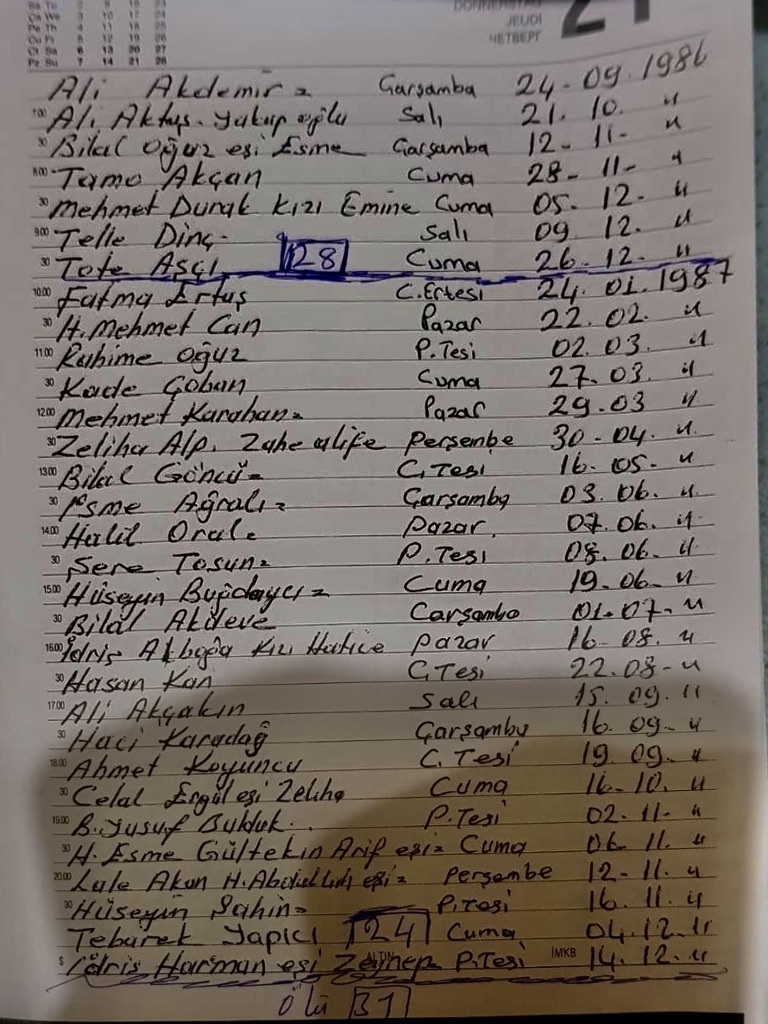 DONNERSTAG
JEUDI
ЧЕТВЕРГ
21
Ali Akdemir = Çarşamba 24-09.1986
7.00 Ali Aktuş. Yakup oğlu Salı 21. 10. "
30 Bilal Oğuz eşi Esme Çarşamba 12- 11- "
8.00 Tamo Akçan Cuma 28- 11- "
30 Mehmet Durak Kızı Emine Cuma 05. 12. "
9.00 Telle Dinç- Salı 09. 12. "
30 Tote Aşçı 28 Cuma 26. 12. "
10.00 Fatma Ertuş C.Ertesi 24. 01. 1987
30 H. Mehmet Can Pazar 22. 02. "
11.00 Rahime Oğuz P.Tesi 02. 03. "
30 Kade Çoban Cuma 27. 03. "
12.00 Mehmet Karahan= Pazar 29.03 "
30 Zeliha Alp. Perşembe 30-04. "
13.00 Bilal Göncü= C.Tesi 16- 05- "
30 Esme Ağralı= Çarşamba 03. 06. "
14.00 Halil Oral= Pazar. 07. 06. "
30 Şere Tosun= P.Tesi 08. 06. "
15.00 Hüseyin Buğdaycı= Cuma 19-06- "
30 Bilal Akdeve Çarşamba 01-07- "
16.00 İdris Kızı Hatice Pazar 16- 08. "
30 Hasan Kan C.Tesi 22.08- "
17.00 Ali Akçakın Salı 15. 09. "
30 Haci Karadağ Çarşamba 16. 09- "
18.00 Ahmet Koyuncu C. Tesi 19. 09. "
30 Celal Ergül eşi Zeliha Cuma 16- 10. "
19.00 B. Yusuf P.Tesi 02. 11- "
30 H. Esme Gültekin Arif eşi= Cuma 06 11. "
20.00 Lale Akan H.Abdullah eşi= Perşembe 12- 11. "
30 Hüseyin Şahin= P.Tesi 16. 11. "
Tebarek Yapıcı 24 Cuma 04. 12. "
$ İdris Harman eşi Zeynep ALTIN P.Tesi İMKB 14. 12. "
Ölü 31